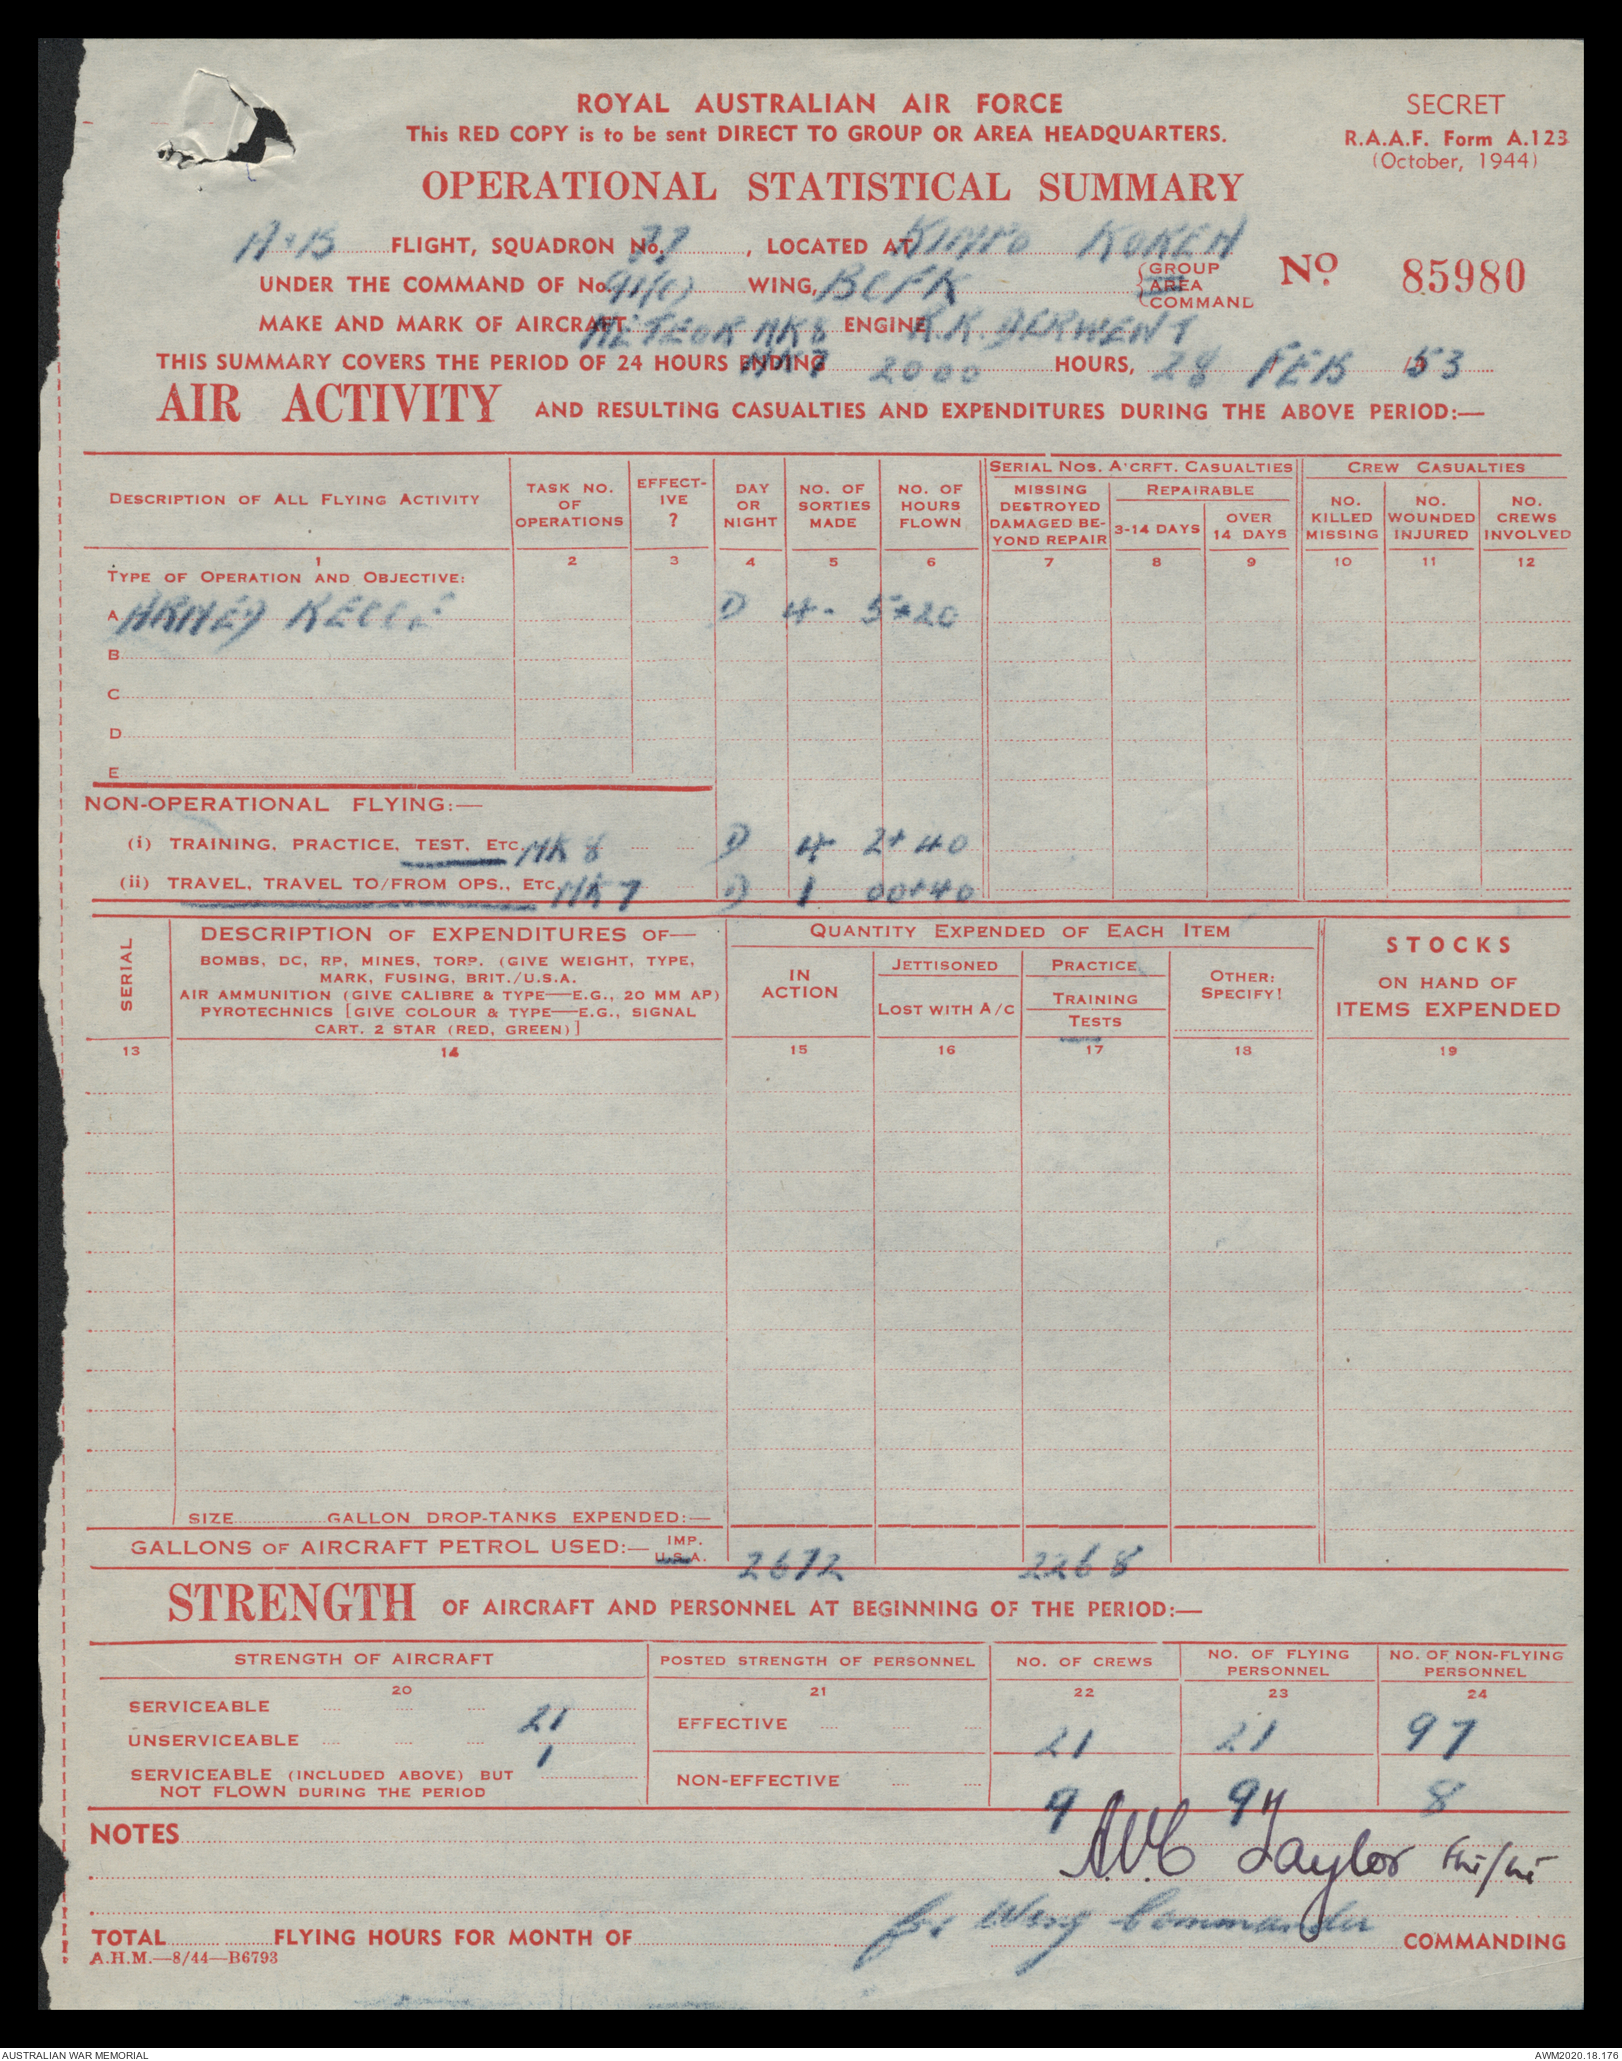 ROYAL AUSTRALIAN AIR FORCE
This RED COPY is to be sent DIRECT TO GROUP OR AREA HEADQUARTERS.
SECRET
R.A.A.F. Form A.123
(October, 1944)
OPERATIONAL STATISTICAL SUMMARY
A+B FLIGHT, SQUADRON No. 77, LOCATED AT KIMPO KOREA
UNDER THE COMMAND OF No. 91(C) WING, BCFK {GROUP AREA COMMAND
No 85980
MAKE AND MARK OF AIRCRAFT METEOR MK8 ENGINE R.R. DERWENT
THIS SUMMARY COVERS THE PERIOD OF 24 HOURS ENDING MK7 2000 HOURS, 28 FEB 53
AIR ACTIVITY AND RESULTING CASUALTIES AND EXPENDITURES DURING THE ABOVE PERIOD:—
DESCRIPTION OF ALL FLYING ACTIVITY
TASK NO. OF OPERATIONS
EFFECT-IVE ?
DAY OR NIGHT
NO. OF SORTIES MADE
NO. OF HOURS FLOWN
SERIAL NOS. A'CRFT. CASUALTIES
MISSING DESTROYED DAMAGED BE-YOND REPAIR
REPAIRABLE
3-14 DAYS
OVER 14 DAYS
CREW CASUALTIES
NO. KILLED MISSING
NO. WOUNDED INJURED
NO. CREWS INVOLVED
1 2 3 4 5 6 7 8 9 10 11 12
TYPE OF OPERATION AND OBJECTIVE:
A ARMED RECCE D 4 5+20
B
C
D
E
NON-OPERATIONAL FLYING:—
(i) TRAINING, PRACTICE, TEST, ETC. MK 8 D 4 2+40
(ii) TRAVEL, TRAVEL TO/FROM OPS., ETC. MK 7 D 1 00+40
SERIAL
DESCRIPTION OF EXPENDITURES OF—
BOMBS, DC, RP, MINES, TORP. (GIVE WEIGHT, TYPE,
MARK, FUSING, BRIT./U.S.A.
AIR AMMUNITION (GIVE CALIBRE & TYPE—E.G., 20 MM AP)
PYROTECHNICS [GIVE COLOUR & TYPE—E.G., SIGNAL
CART. 2 STAR (RED, GREEN)]
QUANTITY EXPENDED OF EACH ITEM
IN ACTION
JETTISONED
LOST WITH A/C
PRACTICE
TRAINING
TESTS
OTHER: SPECIFY!
STOCKS
ON HAND OF
ITEMS EXPENDED
13 14 15 16 17 18 19
SIZE GALLON DROP-TANKS EXPENDED:—
GALLONS OF AIRCRAFT PETROL USED:— IMP. U.S.A. 2672 2268
STRENGTH OF AIRCRAFT AND PERSONNEL AT BEGINNING OF THE PERIOD:—
STRENGTH OF AIRCRAFT
POSTED STRENGTH OF PERSONNEL
NO. OF CREWS
NO. OF FLYING PERSONNEL
NO. OF NON-FLYING PERSONNEL
20 21 22 23 24
SERVICEABLE 21
UNSERVICEABLE 1
EFFECTIVE 21 21 97
SERVICEABLE (INCLUDED ABOVE) BUT
NOT FLOWN DURING THE PERIOD
NON-EFFECTIVE 9 9 8
NOTES
A.W.C Taylor Flt/Lt
for Wing Commander
TOTAL FLYING HOURS FOR MONTH OF COMMANDING
A.H.M.—8/44—B6793
AUSTRALIAN WAR MEMORIAL
AWM2020.18.176